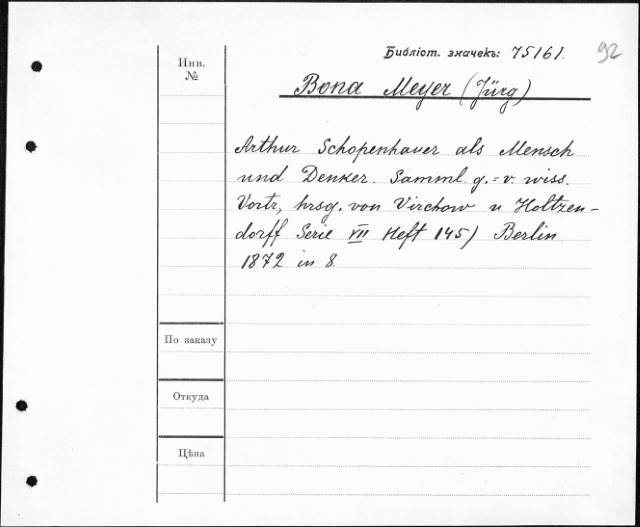 Инв. №
Библіот. значекъ: 75161.
92
Bona Meyer (Jürg)
Arthur Schopenhauer als Mensch
und Denker. Samml. g.=v. wiss.
Vortr, hrsg. von Virchow u Holtzen-
dorff Serie VII Heft 145) Berlin
1872 in 8.
По заказу
Откуда
Цѣна